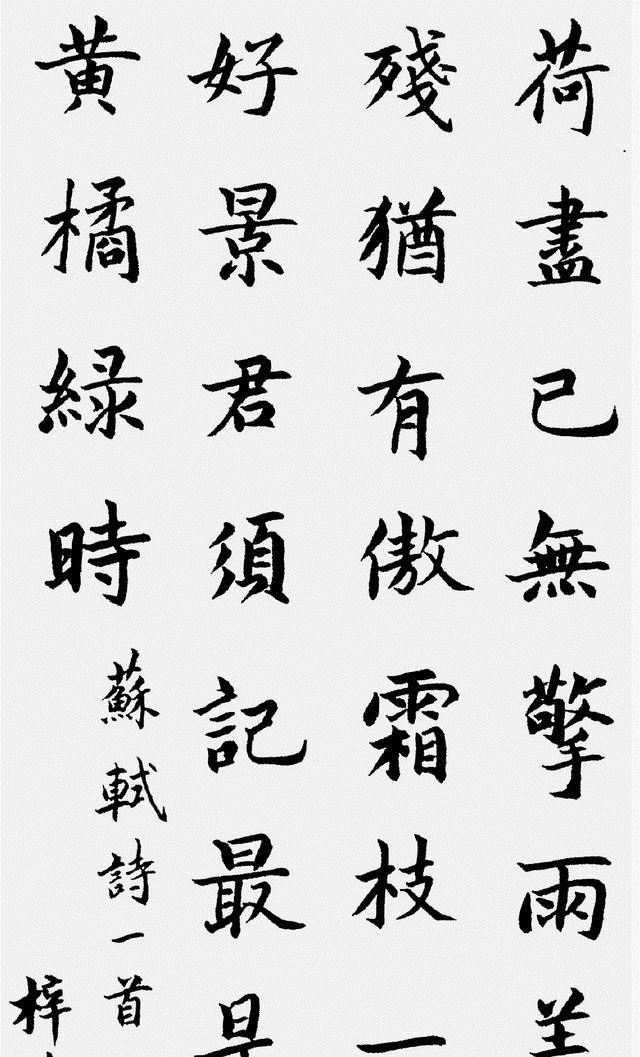 荷盡已無擎雨
殘猶有傲霜枝一
好景君須記最
黄橘緑時
蘇軾詩一首
梓